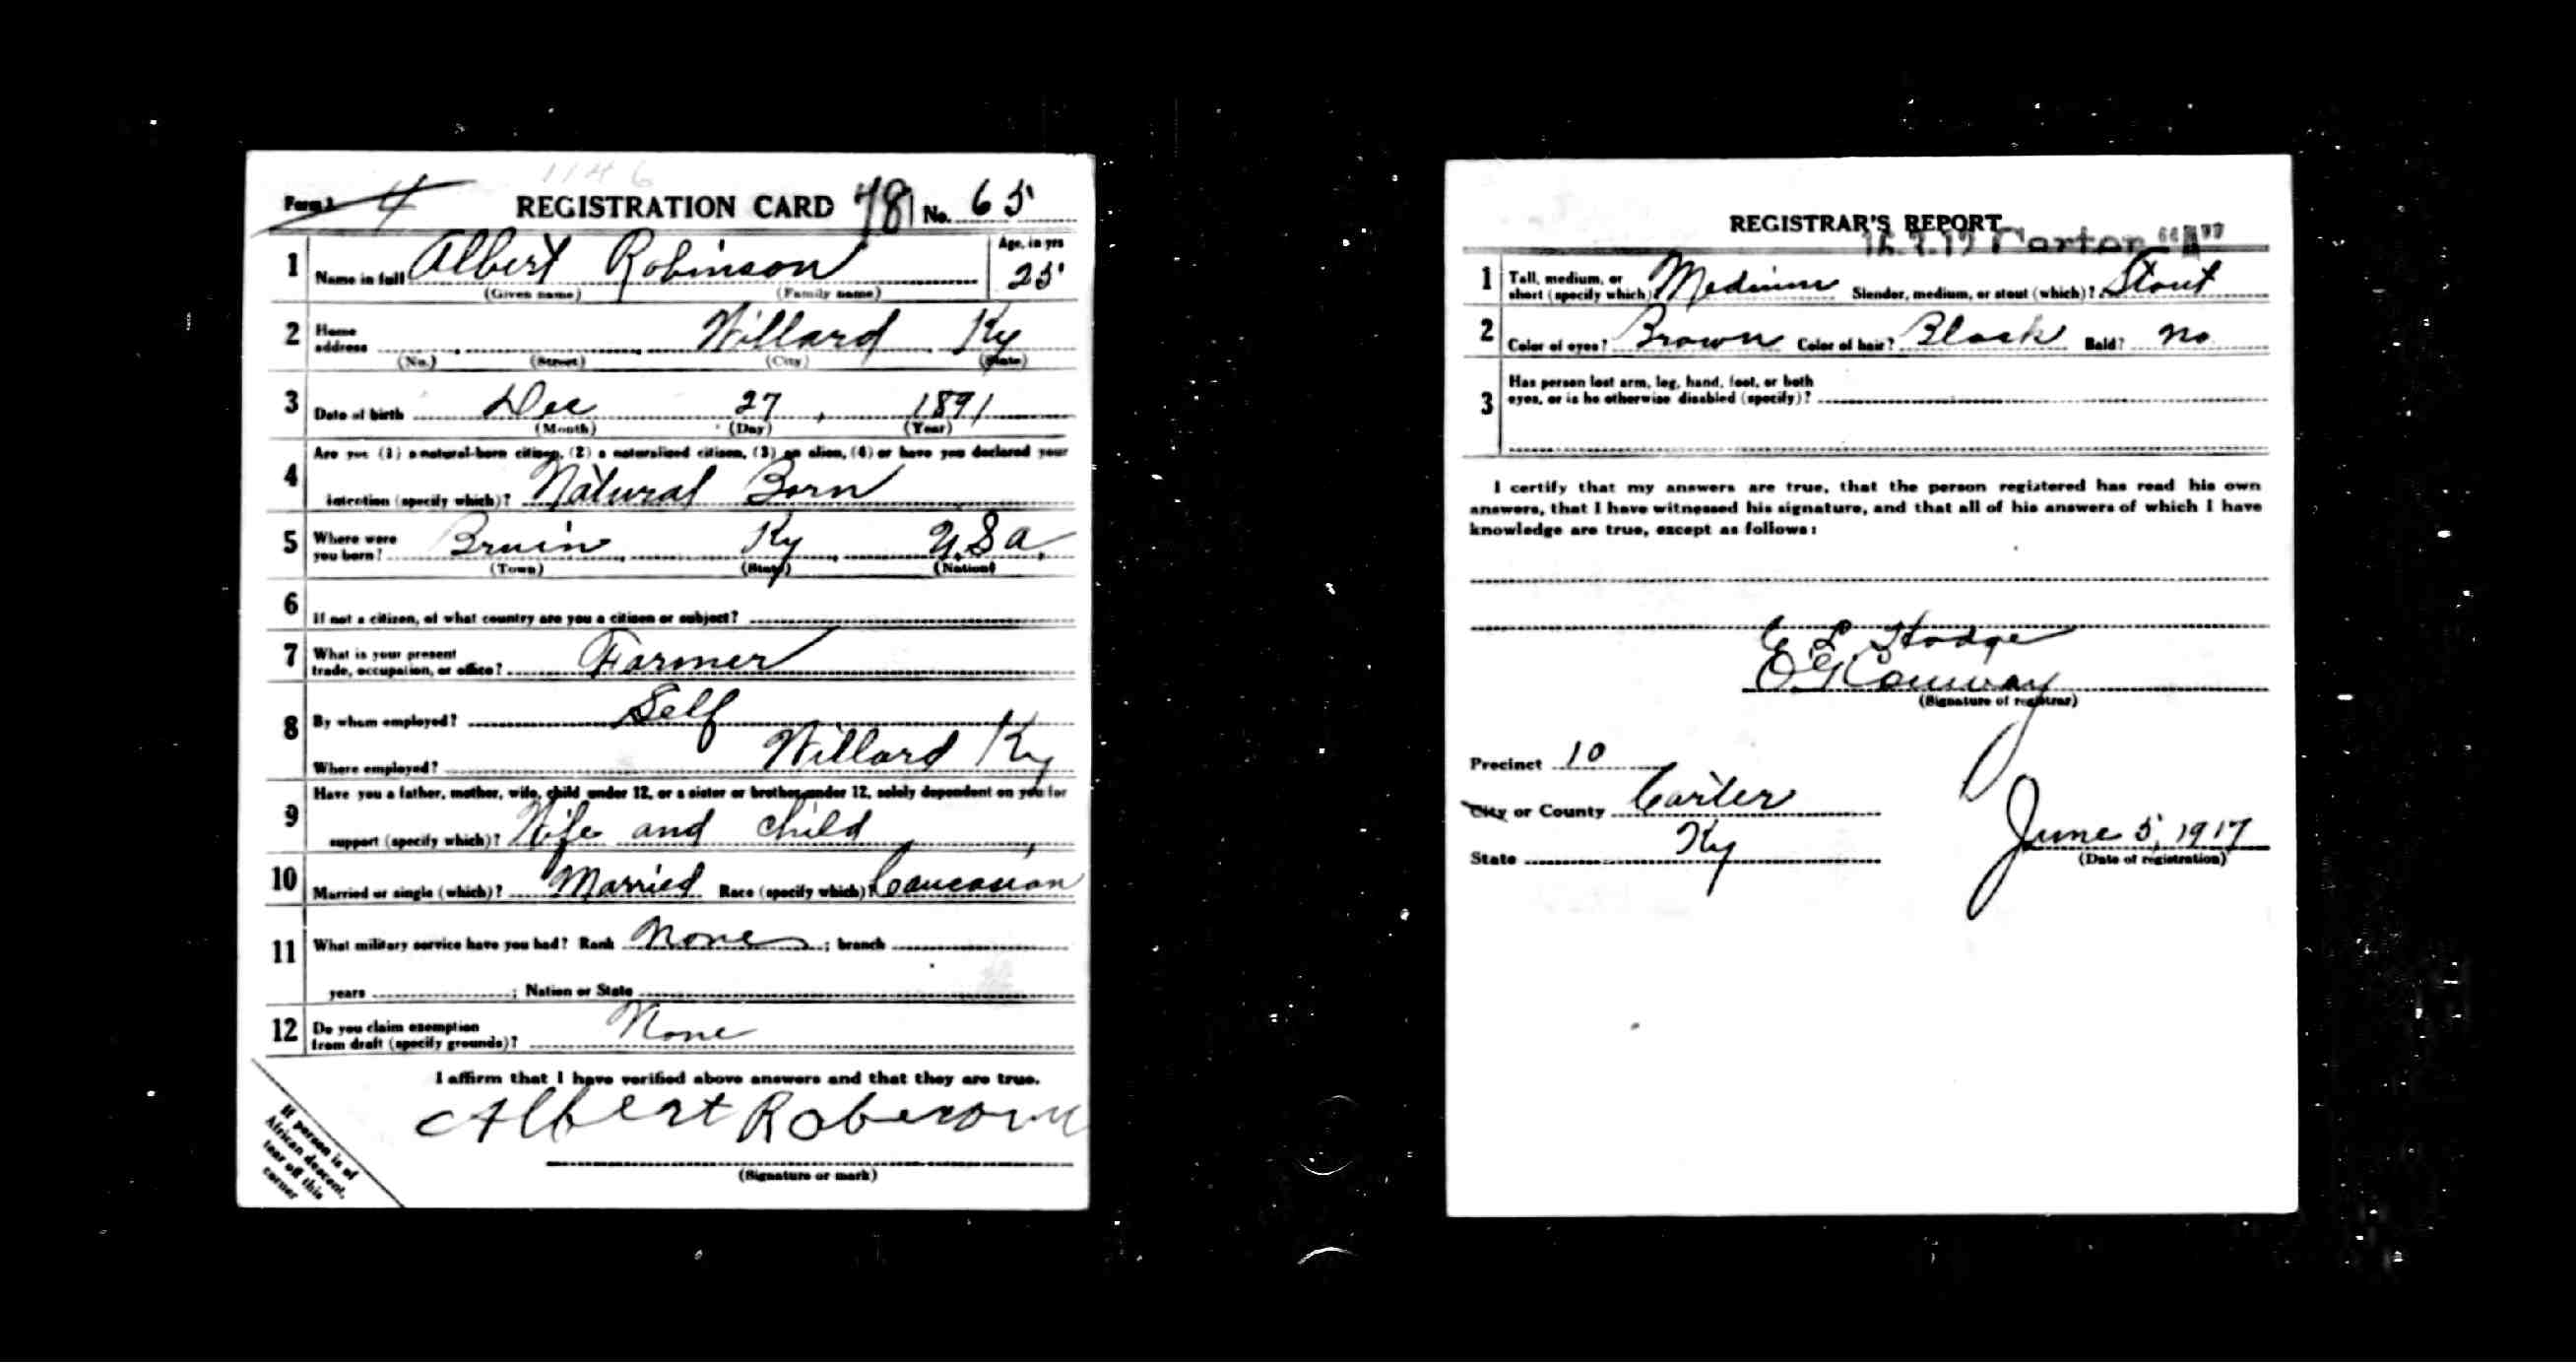 1146
Form 1 4 REGISTRATION CARD 78 No. 65
1 Name in full Albert Robinson Age, in yrs 25
(Given name) (Family name)
2 Home address Willard Ky
(No.) (Street) (City) (State)
3 Date of birth Dec 27, 1891
(Month) (Day) (Year)
Are you (1) a natural-born citizen, (2) a naturalized citizen, (3) an alien, (4) or have you declared your
4 intention (specify which)? Natural Born
5 Where were you born? Bruin, Ky, U.S a.
(Town) (State) (Nation)
6 If not a citizen, of what country are you a citizen or subject?
7 What is your present
trade, occupation, or office? Farmer
8 By whom employed? Self
Where employed? Willard Ky
Have you a father, mother, wife, child under 12, or a sister or brother under 12, solely dependent on you for
9 support (specify which)? Wife and child
10 Married or single (which)? Married Race (specify which)? Caucasian
11 What military service have you had? Rank None; branch
years ; Nation or State
12 Do you claim exemption
from draft (specify grounds)? None
I affirm that I have verified above answers and that they are true.
Albert Roberson
(Signature or mark)
If person is of
African descent,
tear off this
corner
REGISTRAR'S REPORT
Carter "A"
1 Tall, medium, or
short (specify which)? Medium Slender, medium, or stout (which)? Stout
2 Color of eyes? Brown Color of hair? Black Bald? no
Has person lost arm, leg, hand, foot, or both
3 eyes, or is he otherwise disabled (specify)?
I certify that my answers are true, that the person registered has read his own
answers, that I have witnessed his signature, and that all of his answers of which I have
knowledge are true, except as follows:
E. L. Hodge
O G Conway
(Signature of registrar)
Precinct 10
City or County Carter
State Ky June 5, 1917
(Date of registration)